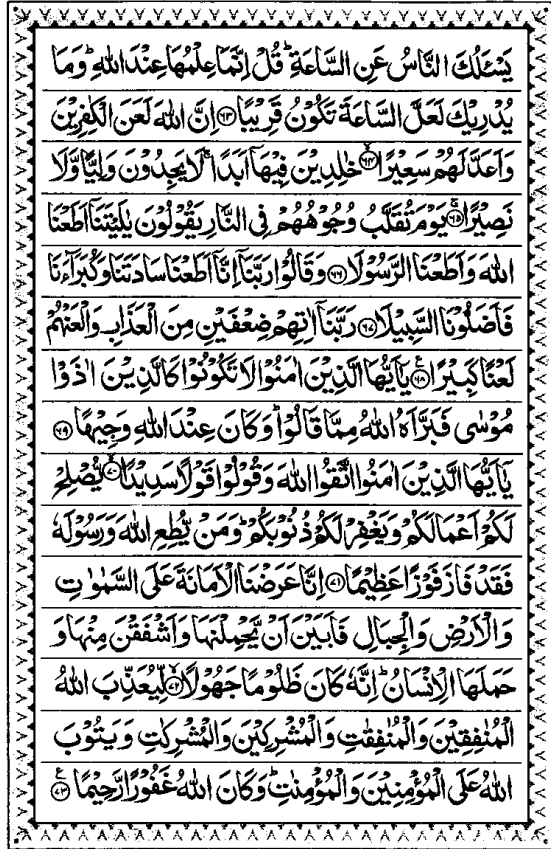 يَسْـَٔلُكَ النَّاسُ عَنِ السَّاعَةِ ؕ قُلْ اِنَّمَا عِلْمُهَا عِنْدَ اللّٰهِ ؕ وَمَا
يُدْرِيْكَ لَعَلَّ السَّاعَةَ تَكُوْنُ قَرِيْبًا ﴿۶۳﴾ اِنَّ اللّٰهَ لَعَنَ الْكٰفِرِيْنَ
وَاَعَدَّ لَهُمْ سَعِيْرًا ﴿۶۴﴾ خٰلِدِيْنَ فِيْهَاۤ اَبَدًا ۚ لَا يَجِدُوْنَ وَلِيًّا وَّلَا
نَصِيْرًا ﴿۶۵﴾ يَوْمَ تُقَلَّبُ وُجُوْهُهُمْ فِى النَّارِ يَقُوْلُوْنَ يٰلَيْتَنَاۤ اَطَعْنَا
اللّٰهَ وَاَطَعْنَا الرَّسُوْلَا ﴿۶۶﴾ وَقَالُوْا رَبَّنَاۤ اِنَّاۤ اَطَعْنَا سَادَتَنَا وَكُبَرَآءَنَا
فَاَضَلُّوْنَا السَّبِيْلَا ﴿۶۷﴾ رَبَّنَاۤ اٰتِهِمْ ضِعْفَيْنِ مِنَ الْعَذَابِ وَالْعَنْهُمْ
لَعْنًا كَبِيْرًا ﴿۶۸﴾ يٰۤاَيُّهَا الَّذِيْنَ اٰمَنُوْا لَا تَكُوْنُوْا كَالَّذِيْنَ اٰذَوْا
مُوْسٰى فَبَرَّاَهُ اللّٰهُ مِمَّا قَالُوْا ؕ وَكَانَ عِنْدَ اللّٰهِ وَجِيْهًا ﴿۶۹﴾
يٰۤاَيُّهَا الَّذِيْنَ اٰمَنُوا اتَّقُوا اللّٰهَ وَقُوْلُوْا قَوْلًا سَدِيْدًا ﴿۷۰﴾ يُّصْلِحْ
لَكُمْ اَعْمَالَكُمْ وَيَغْفِرْ لَكُمْ ذُنُوْبَكُمْ ؕ وَمَنْ يُّطِعِ اللّٰهَ وَرَسُوْلَهٗ
فَقَدْ فَازَ فَوْزًا عَظِيْمًا ﴿۷۱﴾ اِنَّا عَرَضْنَا الْاَمَانَةَ عَلَى السَّمٰوٰتِ
وَالْاَرْضِ وَالْجِبَالِ فَاَبَيْنَ اَنْ يَّحْمِلْنَهَا وَاَشْفَقْنَ مِنْهَا وَ
حَمَلَهَا الْاِنْسَانُ ؕ اِنَّهٗ كَانَ ظَلُوْمًا جَهُوْلًا ﴿۷۲﴾ لِّيُعَذِّبَ اللّٰهُ
الْمُنٰفِقِيْنَ وَالْمُنٰفِقٰتِ وَالْمُشْرِكِيْنَ وَالْمُشْرِكٰتِ وَيَتُوْبَ
اللّٰهُ عَلَى الْمُؤْمِنِيْنَ وَالْمُؤْمِنٰتِ ؕ وَكَانَ اللّٰهُ غَفُوْرًا رَّحِيْمًا ﴿۷۳﴾